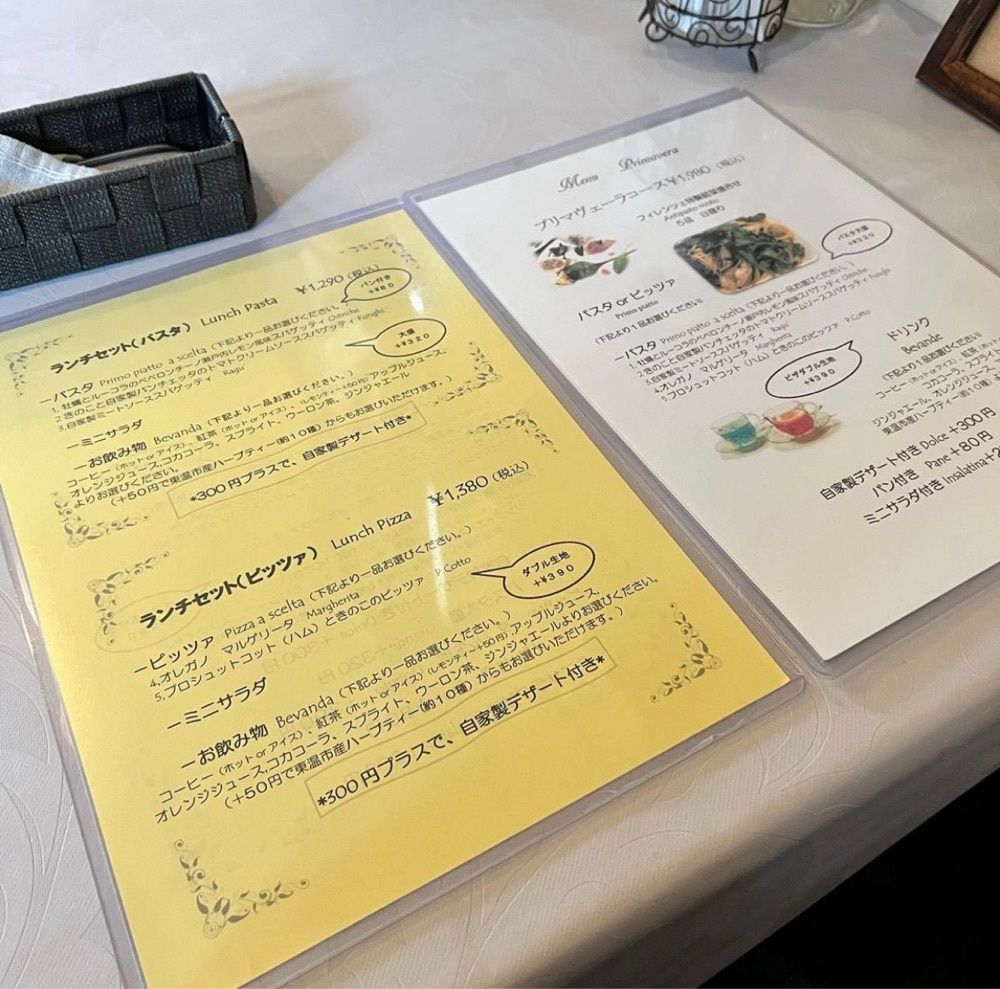 ランチセット(パスタ) Lunch Pasta ¥1,290 (税込)
パン付き
+¥80
ーパスタ Primo piatto a scelta (下記より一品お選びください。)
1. 牡蠣とルーコラのペペロンチーノ瀬戸内レモン風味スパゲッティ Ostriche
2.きのこと自家製パンチェッタのトマトクリームソーススパゲッティ Funghi
3.自家製ミートソーススパゲッティ Ragu'
大盛
+¥320
ーミニサラダ
ーお飲み物 Bevanda (下記より一品お選びください。)
コーヒー(ホット or アイス)、紅茶(ホット or アイス)、(レモンティー+50円),アップルジュース、
オレンジジュース,コカコーラ、スプライト、ウーロン茶、ジンジャエール
よりお選びください。
(+50円で東温市産ハーブティー(約10種)からもお選びいただけます。)
*300円プラスで、自家製デザート付き*
ランチセット(ピッツァ) Lunch Pizza ¥1,380 (税込)
ーピッツァ Pizza a scelta (下記より一品お選びください。)
4.オレガノ マルゲリータ Margherita
5.プロシュットコット(ハム)ときのこのピッツァ P.Cotto
ダブル生地
+¥390
ーミニサラダ
ーお飲み物 Bevanda (下記より一品お選びください。)
コーヒー(ホット or アイス)、紅茶(ホット or アイス)(レモンティー+50円),アップルジュース,
オレンジジュース,コカコーラ、スプライト、ウーロン茶、ジンジャエールよりお選びください。
(+50円で東温市産ハーブティー(約10種)からもお選びいただけます。)
*300円プラスで、自家製デザート付き*
Menu Primavera
プリマヴェーラコース¥1,980 (税込)
フィレンツェ特製前菜盛合せ
Antipasto misto
5品 日替り
パスタ大盛
+¥320
パスタ or ピッツァ
Primo piatto
(下記より1品お選びください)
ーパスタ Primo piatto a scelta (下記より一品お選びください。)
1. 牡蠣とルーコラのペペロンチーノ瀬戸内レモン風味スパゲッティ Ostriche
2.きのこと自家製パンチェッタのトマトクリームソーススパゲッティ Funghi
3.自家製ミートソーススパゲッティ Ragu'
4.オレガノ マルゲリータ Margherita
5.プロシュットコット(ハム)ときのこのピッツァ P.Cotto
ピザダブル生地
+¥390
ドリンク
Bevande
(下記よりお選びくださ
コーヒー(ホット or アイス),紅茶(ホット
コカコーラ、スプライ
ジンジャエール,オレンジジュース,
東温市産ハーブティー(約10種)
自家製デザート付き Dolce +300円
パン付き Pane +80円
ミニサラダ付き Insalatina +2